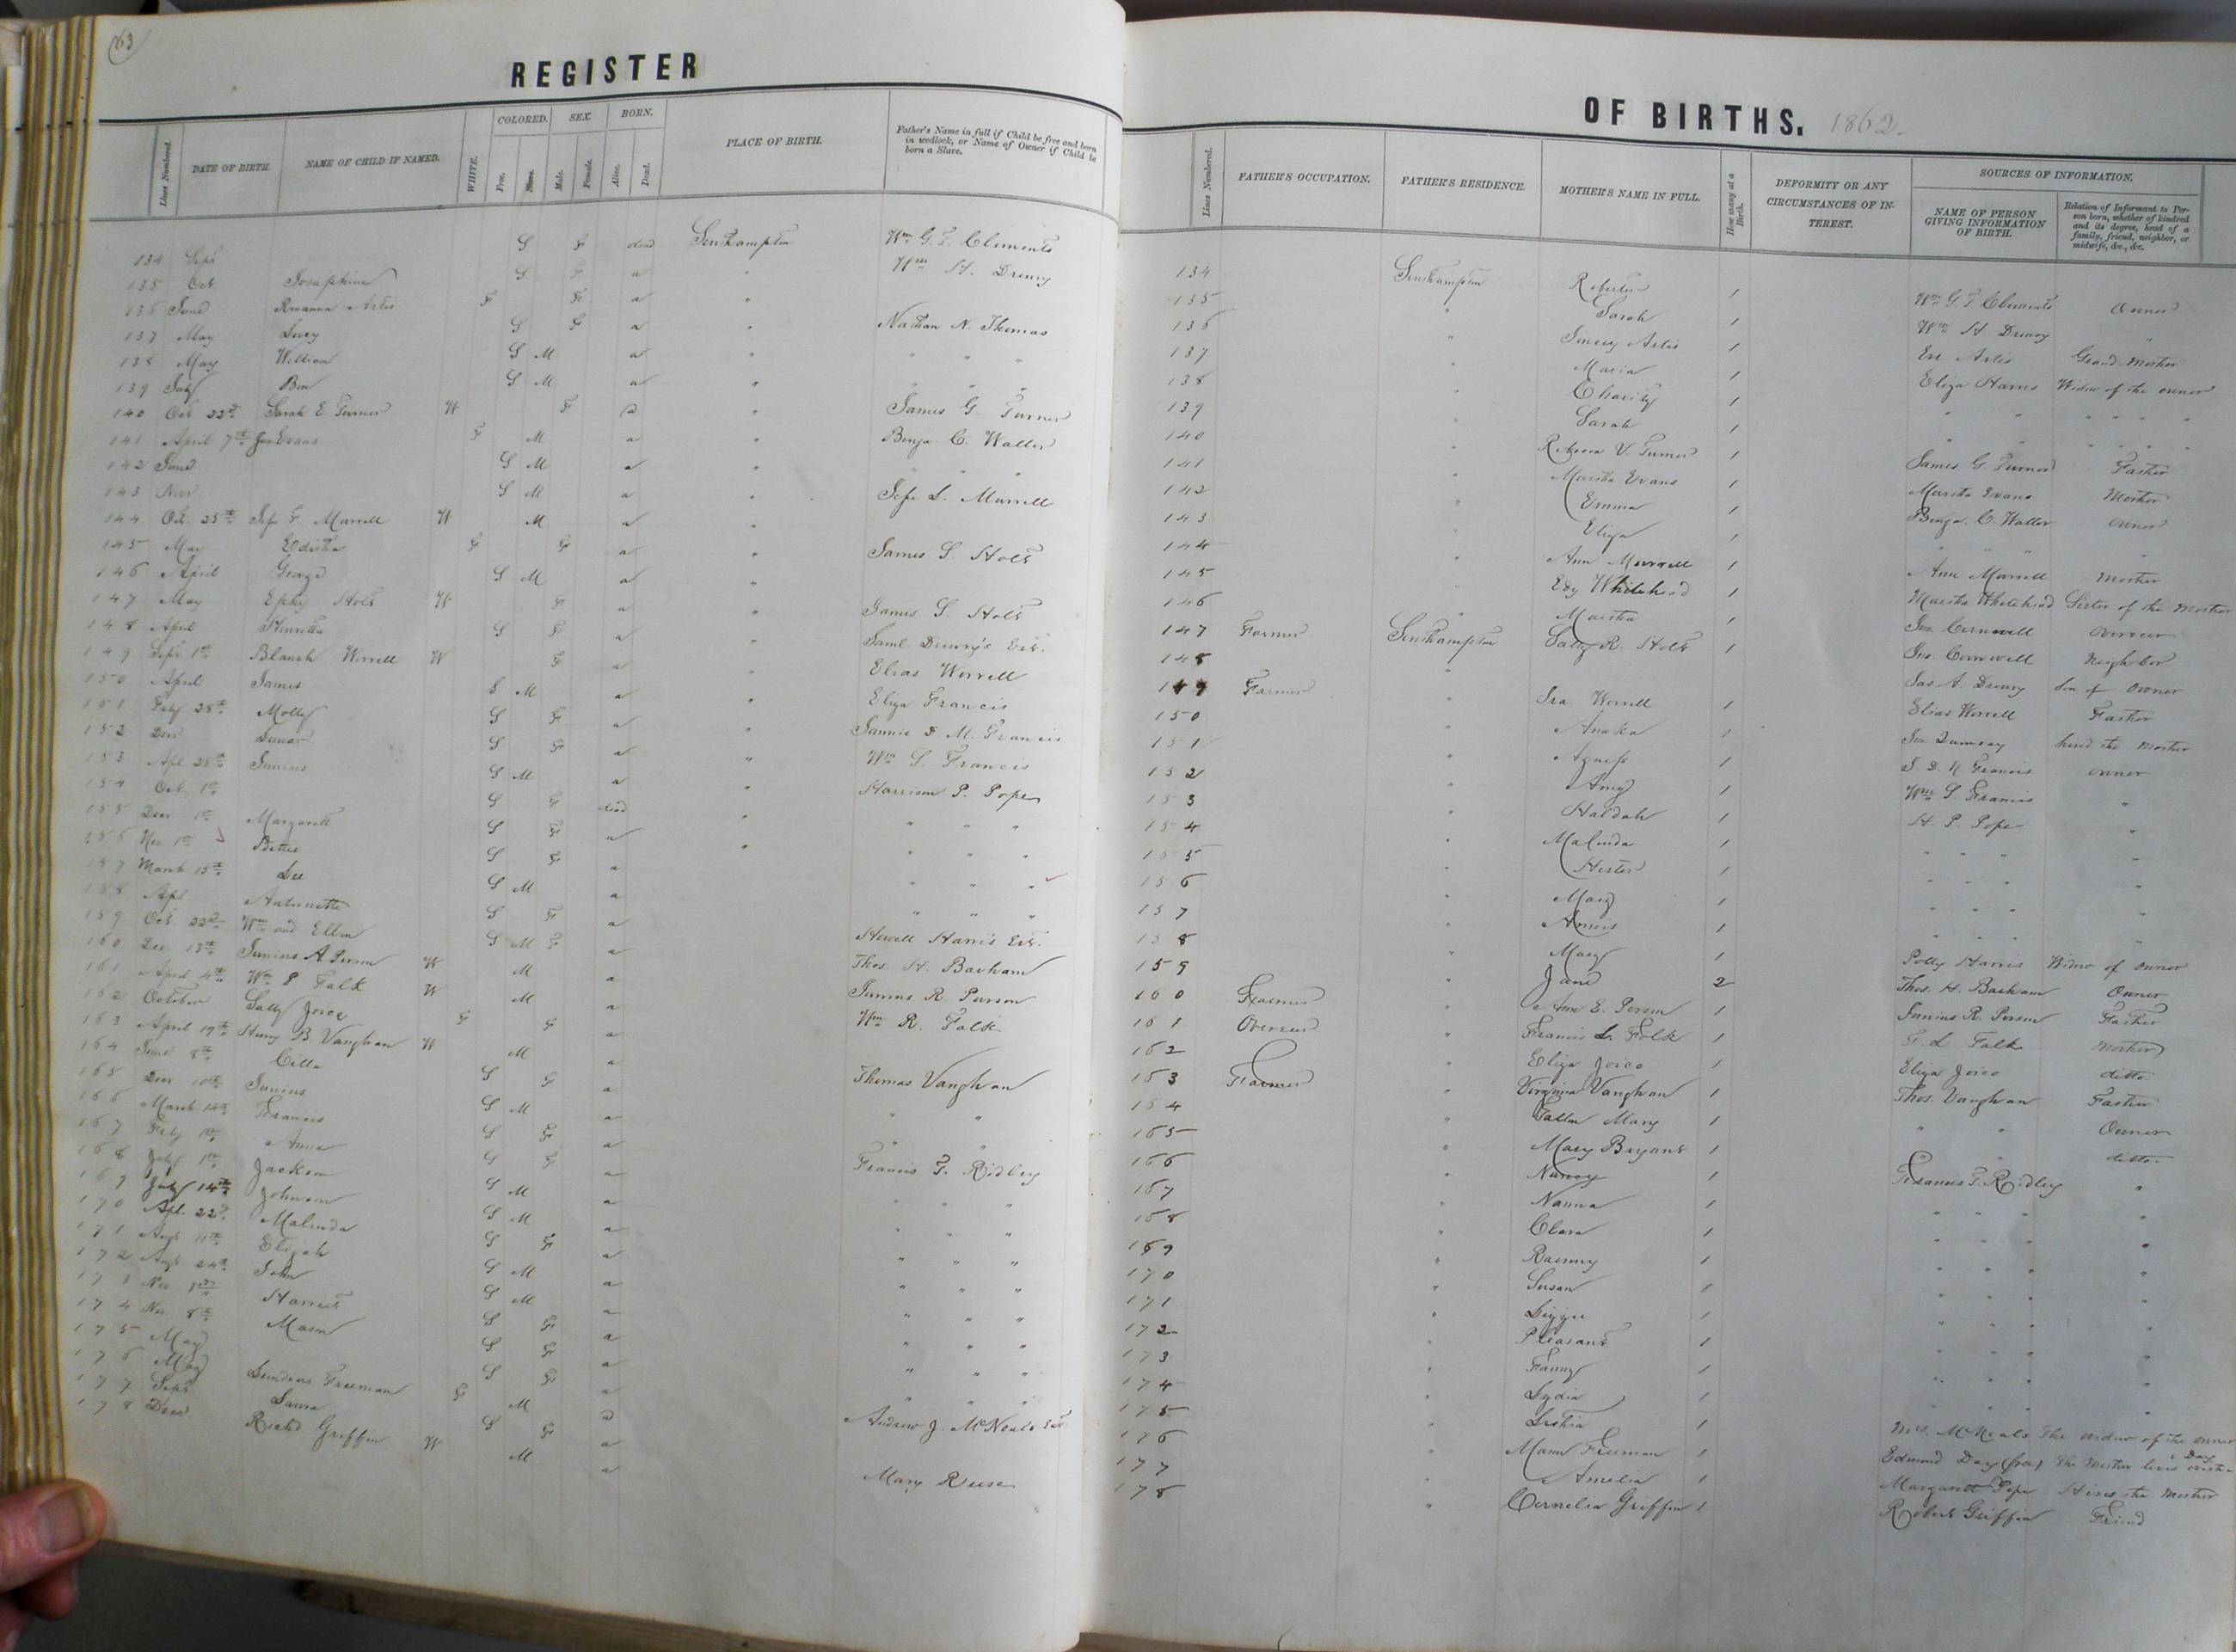 (63)
REGISTER
Lines Numbered. DATE OF BIRTH. NAME OF CHILD IF NAMED. WHITE. COLORED. Free. Slave. SEX. Male. Female. BORN. Alive. Dead. PLACE OF BIRTH. Father's Name in full if Child be free and born in wedlock, or Name of Owner if Child be born a Slave.
134 Sept S F dead Southampton Wm G. T. Clements
135 Oct Josephine S F a " Wm H. Drewry
136 June Roxanna Artis F F a "
137 May Lucy S F a " Nathan N. Thomas
138 May William S M a " " " "
139 July Ben S M a " " " "
140 Oct 22d Sarah E Turner W F a " James G. Turner
141 April 7th Evans F M a "
142 June S M a " Benja. C. Waller
143 Nov S M a " " " "
144 Oct. 25th F. Murrell W M a " L. Murrell
145 May Editha F F a "
146 April George S M a " James S. Holt
147 May Holt W F a " James S. Holt
148 April Henrietta S F a " Saml. Drewry's Est.
149 Sept 1st Blanch Worrell W F a " Elias Worrell
150 April James S M a " Eliza Francis
151 Feby 28th Molly S F a " Francis
152 Dec Susan S F a " Wm S. Francis
153 Apl 28th Junius S M a " Harrison P. Pope
154 Oct 1st S F dead " " " "
155 Dec 1st Margarett S F a " " " "
156 Nov 1st Bettie S F a " " "
157 March 15th Lee S M a " " "
158 Apl Antunette S F a Howell Harris Est.
159 Oct 22d Wm and Ellen S M F a Thos. H. Barham
160 Dec 13th Junius A Person W M a Junius R. Person
161 April 4th Wm P Folk W M a Wm R. Folk
162 October Sally Joice F F a
163 April 19th Henry B Vaughan W M a Thomas Vaughan
164 June 8th Cilla S F a " "
165 Dec 10th Junius S M a " "
166 March 14th Francis S F a Francis T. Ridley
167 Feby 1st Anna S F a " " "
168 July 1st Jackson S M a " " "
169 July 14th Johnson S M a " " "
170 Apl. 22d Malinda S F a " " "
171 Augt 11th Elijah S M a " " "
172 Augt 24th John S M a " " "
173 Nov Harriet S F a " " "
174 Nov 8th S F a " " "
175 May S F a Andrew J. McNeals Est
176 May Freeman F M a
177 Sept Laura S F a Mary
178 Dec Richd Griffin W M a
OF BIRTHS. 1862
Lines Numbered. FATHER'S OCCUPATION. FATHER'S RESIDENCE. MOTHER'S NAME IN FULL. How many at a Birth. DEFORMITY OR ANY CIRCUMSTANCES OF INTEREST. SOURCES OF INFORMATION. NAME OF PERSON GIVING INFORMATION OF BIRTH. Relation of Informant to Person born, whether of kindred and its degree, head of a family, friend, neighbor, or midwife, &c., &c.
134 Southampton 1 Wm G T Clements Owner
135 " Sarah 1 Wm H Drewry "
136 " Artis 1 Artis Grand-Mother
137 " Maria 1 Eliza Harris Widow of the owner
138 " Charity 1 " " " " " "
139 " Sarah 1 " " " " " "
140 " Rebecca V. Turner 1 James G Turner Father
141 " Martha Evans 1 Martha Evans Mother
142 " Emma 1 Benja. C. Waller Owner
143 " Eliza 1 " " " "
144 " Ann Murrell 1 Ann Murrell Mother
145 " Edy Whitehead 1 Martha Whitehead Sister of the Mother
146 " Martha 1 Jno. Cornwell Overseer
147 Farmer Southampton R. Holt 1 Jno. Cornwell Neighbor
148 " Jas A. Drewry Son of Owner
149 Farmer " Worrell 1 Elias Worrell Father
150 " Anaka 1 hired the Mother
151 " Agness 1 Francis owner
152 " Amy 1 Wm S. Francis "
153 " Haldah 1 H. P. Pope "
154 " Malinda 1 " " " "
155 " Hester 1 " " " "
156 " Mary 1 " " " "
157 " 1 " " " "
158 " Mary 1 Polly Harris Widow of owner
159 " Jane 2 Thos. H. Barham Owner
160 Farmer " Ann E. Person 1 Junius R. Person Father
161 Overseer " Francis L. Folk 1 F. L Folk Mother
162 " Eliza Joice 1 Eliza Joice ditto
163 Farmer " Virginia Vaughan 1 Thos. Vaughan Father
164 " Mary 1 " " Owner
165 " Mary Bryant 1 " " ditto.
166 " Nancy 1 Francis T. Ridley "
167 " Nanna 1 " " " "
168 " Clara 1 " " " "
169 " 1 " " " "
170 " Susan 1 " " " "
171 " 1 " " " "
172 " Pleasant 1 " " " "
173 " Fanny 1 " " " "
174 " Lydia 1 " " " "
175 " 1 Mrs. McNeals The widow of the owner
176 Freeman 1 Edmund Day (free) The Mother lives with E Day
177 Amelia 1 Margarett Pope Hires the Mother
178 " Cornelia Griffin 1 Robert Griffin Friend